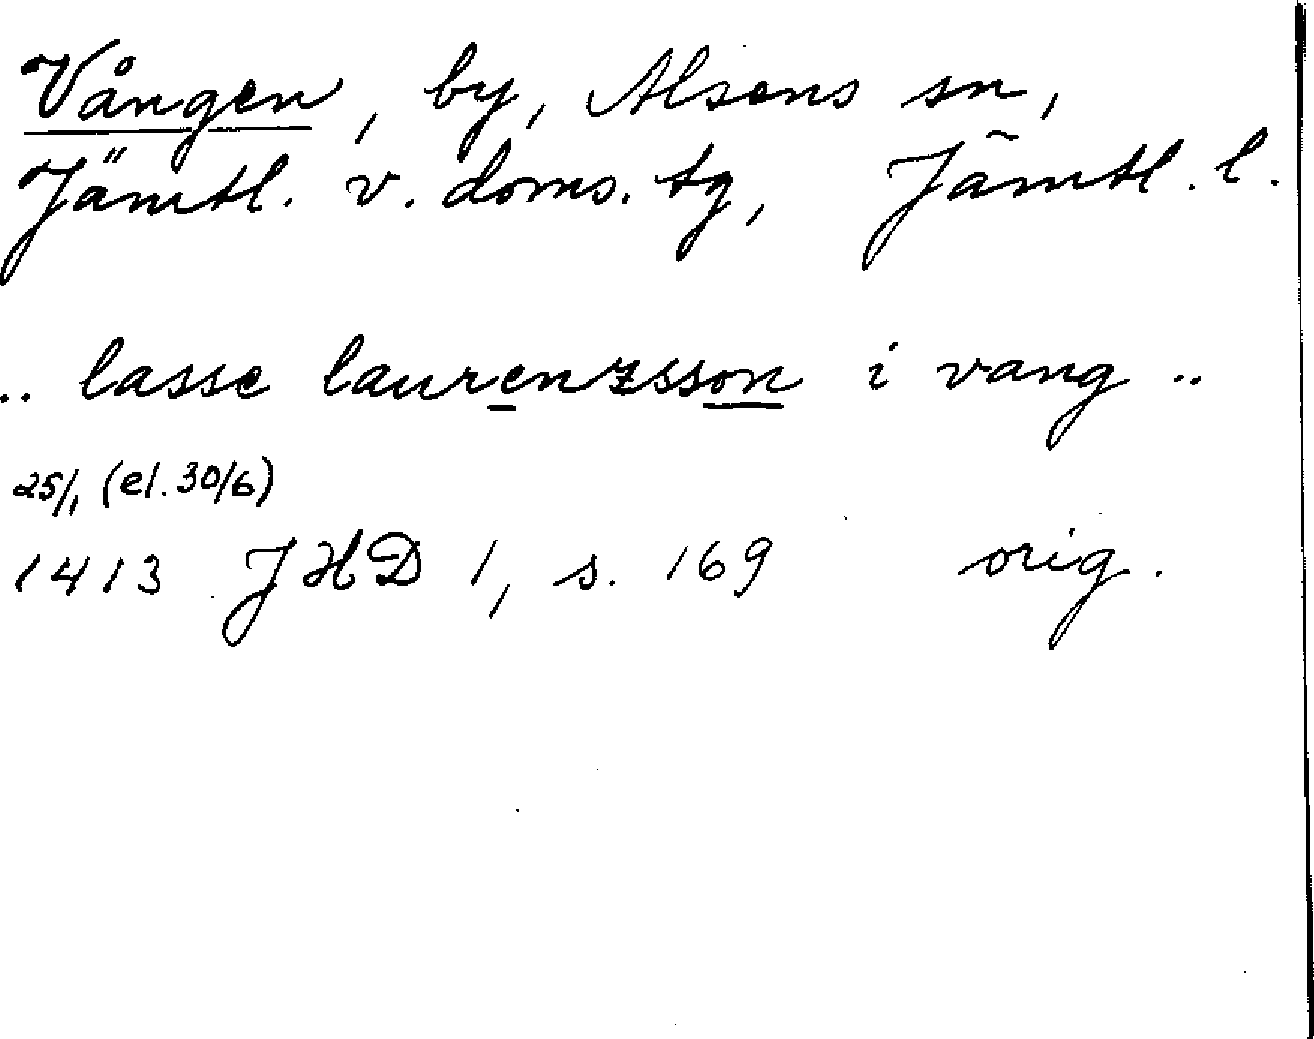 Vången, by, Alsens sn,
Jämtl. v. doms. tg, Jämtl. l.
.. lasse laurenzsson i vang ..
25/1 (el. 30/6)
1413 JHD 1, s. 169 orig.